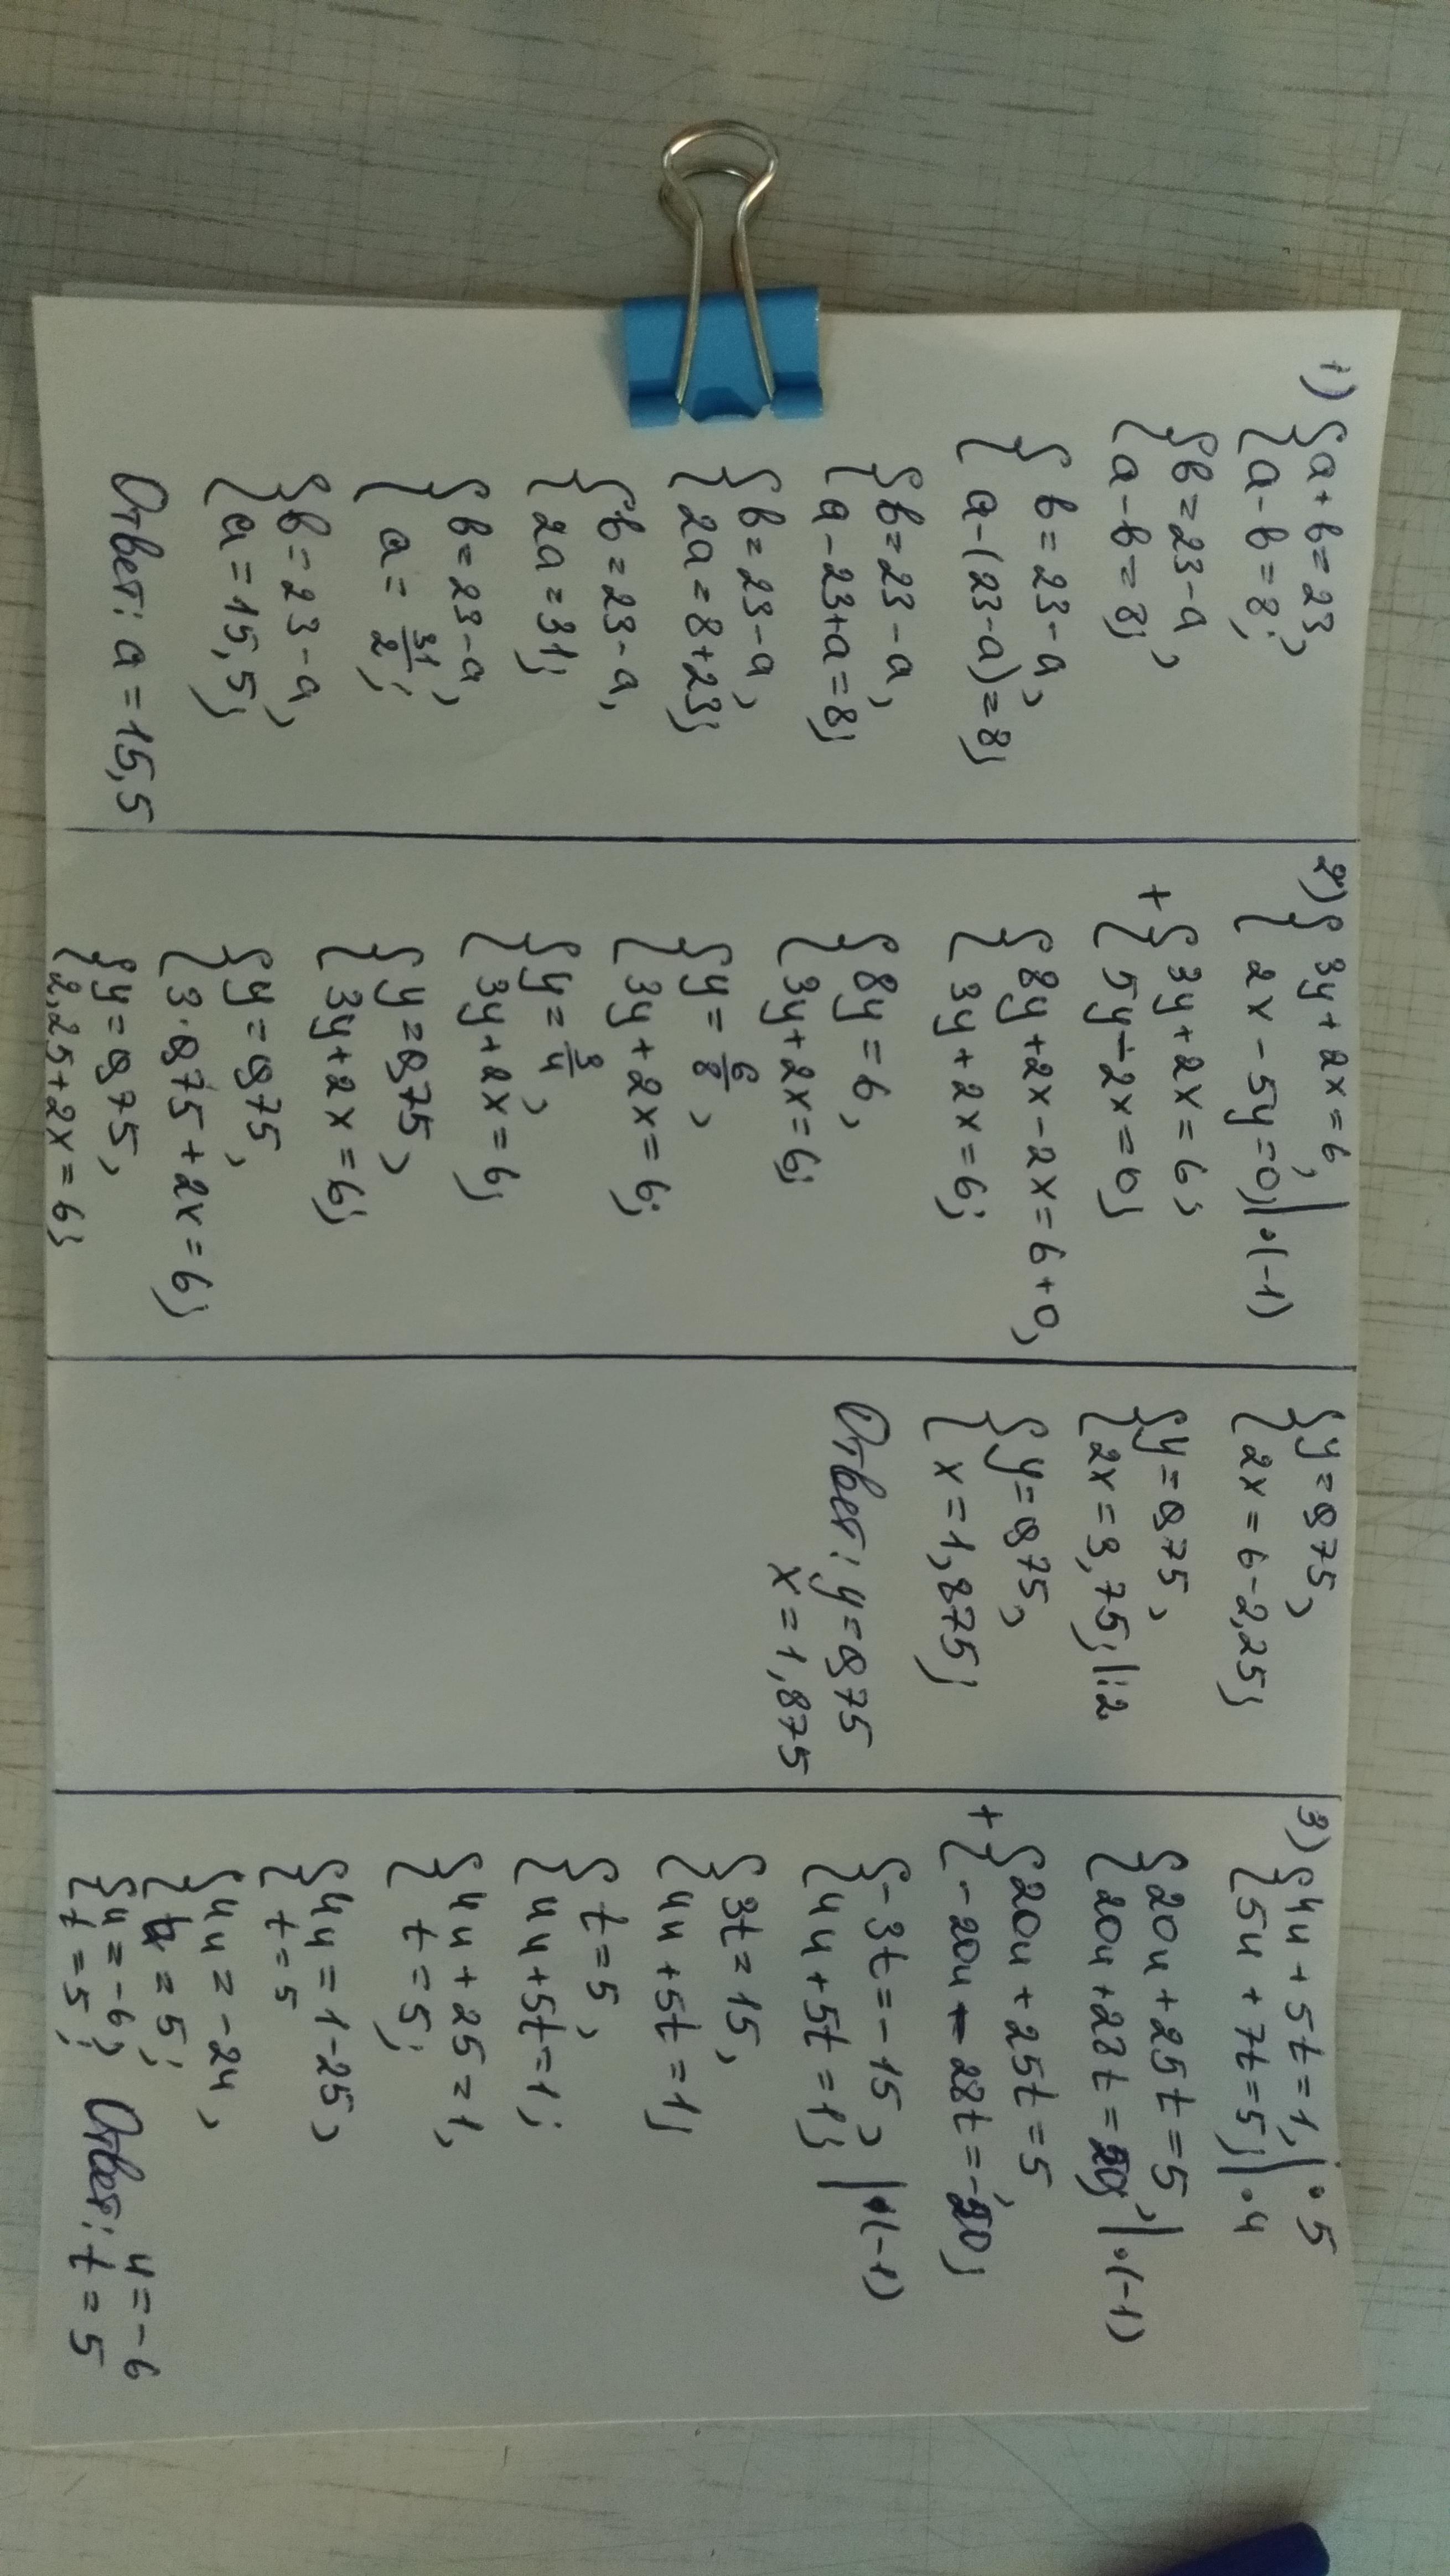 1) { a + b = 23,
{ a - b = 8;
{ b = 23 - a,
{ a - b = 8;
{ b = 23 - a,
{ a - (23 - a) = 8;
{ b = 23 - a,
{ a - 23 + a = 8;
{ b = 23 - a,
{ 2a = 8 + 23;
{ b = 23 - a,
{ 2a = 31;
{ b = 23 - a,
{ a = 31/2;
{ b = 23 - a,
{ a = 15,5;
Ответ: a = 15,5
2) { 3y + 2x = 6, |
{ 2x - 5y = 0; | · (-1)
+ { 3y + 2x = 6,
{ 5y - 2x = 0;
{ 8y + 2x - 2x = 6 + 0,
{ 3y + 2x = 6;
{ 8y = 6,
{ 3y + 2x = 6;
{ y = 6/8,
{ 3y + 2x = 6;
{ y = 3/4,
{ 3y + 2x = 6;
{ y = 0,75,
{ 3y + 2x = 6;
{ y = 0,75,
{ 3 · 0,75 + 2x = 6;
{ y = 0,75,
{ 2,25 + 2x = 6;
{ y = 0,75,
{ 2x = 6 - 2,25;
{ y = 0,75,
{ 2x = 3,75; |:2
{ y = 0,75,
{ x = 1,875;
Ответ: y = 0,75
x = 1,875
3) { 4u + 5t = 1, | · 5
{ 5u + 7t = 5; | · 4
{ 20u + 25t = 5, |
{ 20u + 28t = 20; | · (-1)
+ { 20u + 25t = 5,
{ -20u - 28t = -20;
{ -3t = -15, | · (-1)
{ 4u + 5t = 1;
{ 3t = 15,
{ 4u + 5t = 1;
{ t = 5,
{ 4u + 5t = 1;
{ 4u + 25 = 1,
{ t = 5;
{ 4u = 1 - 25,
{ t = 5
{ 4u = -24,
{ t = 5;
{ u = -6,
{ t = 5;
Ответ: u = -6
t = 5